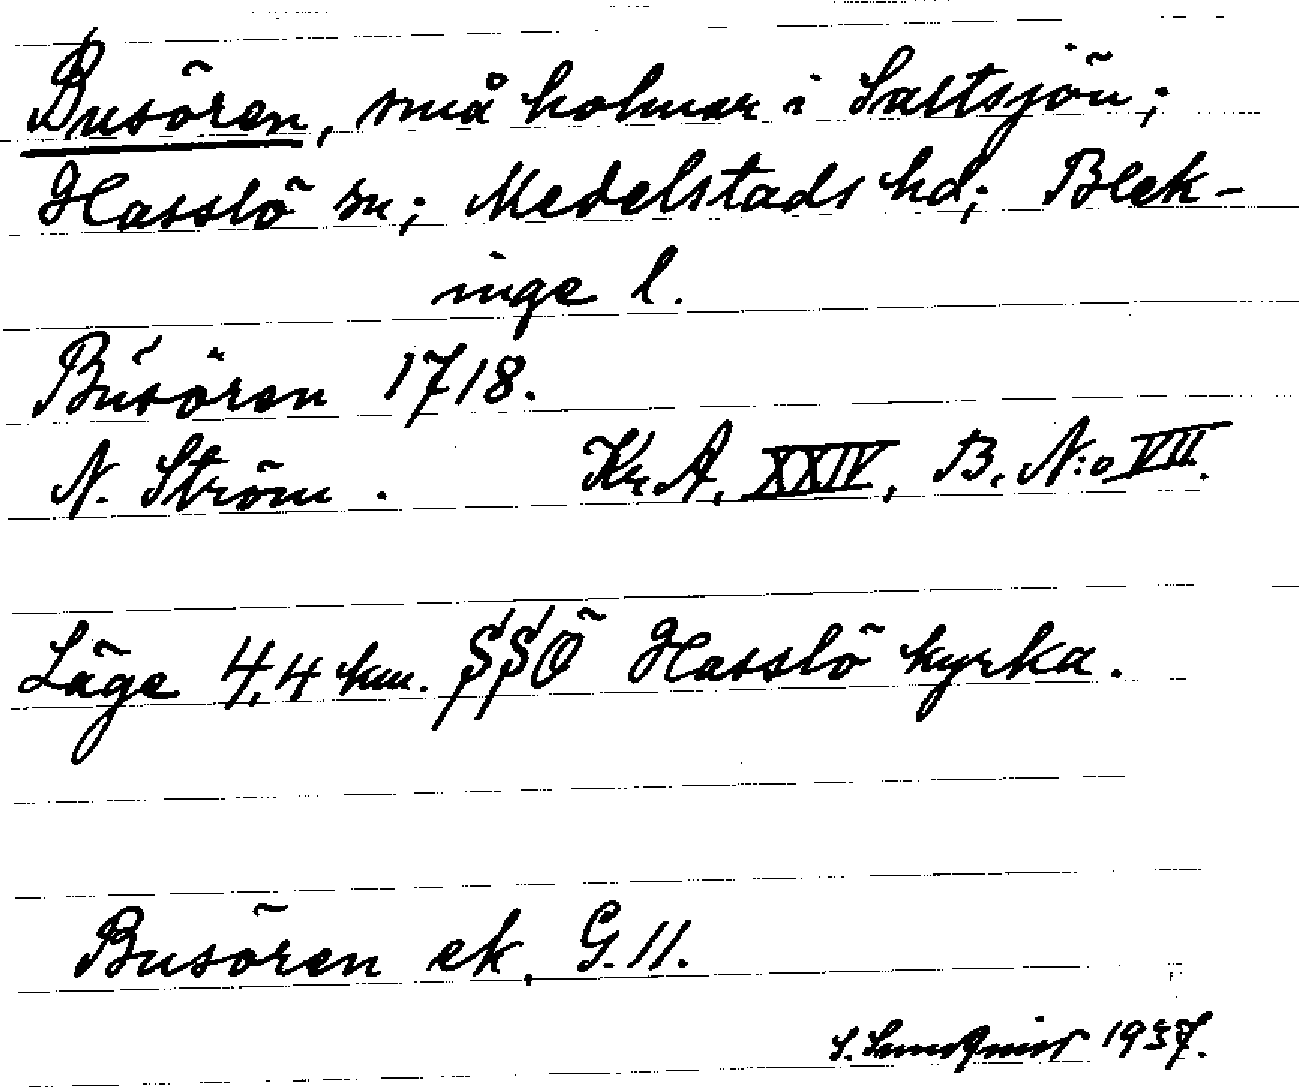 Busören, små holmar i Saltsjön;
Hasslö sn; Medelstads hd; Blek-
inge l.
Busören 1718.
N. Ström. Kr.A, XXIV, B. N:o VII.
Läge 4,4 km. SSÖ Hasslö kyrka.
Busören ek, G.11.
S. Sundqvist 1937.